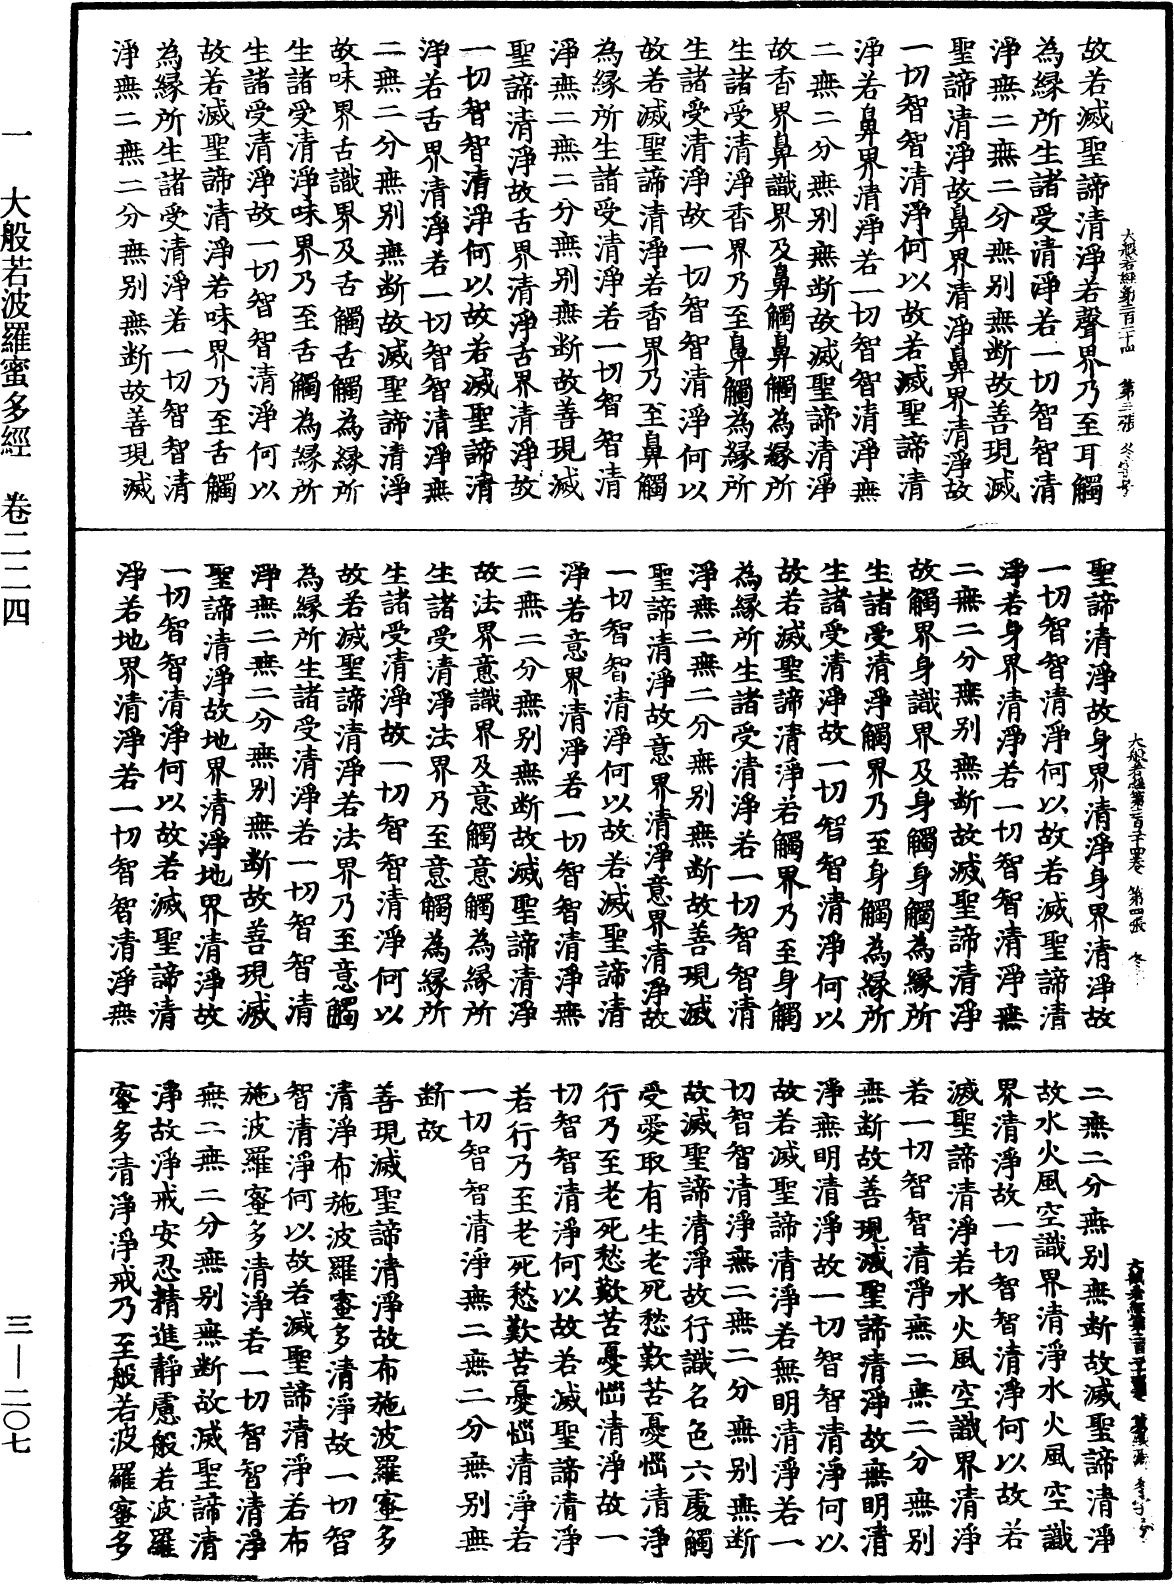 故若滅聖諦清淨若聲界乃至耳觸
為緣所生諸受清淨若一切智智清
淨無二無二分無別無斷故善現滅
聖諦清淨故鼻界清淨鼻界清淨故
一切智智清淨何以故若滅聖諦清
淨若鼻界清淨若一切智智清淨無
二無二分無別無斷故滅聖諦清淨
故香界鼻識界及鼻觸鼻觸為緣所
生諸受清淨香界乃至鼻觸為緣所
生諸受清淨故一切智智清淨何以
故若滅聖諦清淨若香界乃至鼻觸
為緣所生諸受清淨若一切智智清
淨無二無二分無別無斷故善現滅
聖諦清淨故舌界清淨舌界清淨故
一切智智清淨何以故若滅聖諦清
淨若舌界清淨若一切智智清淨無
二無二分無別無斷故滅聖諦清淨
故味界舌識界及舌觸舌觸為緣所
生諸受清淨味界乃至舌觸為緣所
生諸受清淨故一切智智清淨何以
故若滅聖諦清淨若味界乃至舌觸
為緣所生諸受清淨若一切智智清
淨無二無二分無別無斷故善現滅
大般若經第二百二十四 第三張 冬字号
聖諦清淨故身界清淨身界清淨故
一切智智清淨何以故若滅聖諦清
淨若身界清淨若一切智智清淨無
二無二分無別無斷故滅聖諦清淨
故觸界身識界及身觸身觸為緣所
生諸受清淨觸界乃至身觸為緣所
生諸受清淨故一切智智清淨何以
故若滅聖諦清淨若觸界乃至身觸
為緣所生諸受清淨若一切智智清
淨無二無二分無別無斷故善現滅
聖諦清淨故意界清淨意界清淨故
一切智智清淨何以故若滅聖諦清
淨若意界清淨若一切智智清淨無
二無二分無別無斷故滅聖諦清淨
故法界意識界及意觸意觸為緣所
生諸受清淨法界乃至意觸為緣所
生諸受清淨故一切智智清淨何以
故若滅聖諦清淨若法界乃至意觸
為緣所生諸受清淨若一切智智清
淨無二無二分無別無斷故善現滅
聖諦清淨故地界清淨地界清淨故
一切智智清淨何以故若滅聖諦清
淨若地界清淨若一切智智清淨無
大般若經第二百二十四卷 第四張 冬
二無二分無別無斷故滅聖諦清淨
故水火風空識界清淨水火風空識
界清淨故一切智智清淨何以故若
滅聖諦清淨若水火風空識界清淨
若一切智智清淨無二無二分無別
無斷故善現滅聖諦清淨故無明清
淨無明清淨故一切智智清淨何以
故若滅聖諦清淨若無明清淨若一
切智智清淨無二無二分無別無斷
故滅聖諦清淨故行識名色六處觸
受愛取有生老死愁歎苦憂惱清淨
行乃至老死愁歎苦憂惱清淨故一
切智智清淨何以故若滅聖諦清淨
若行乃至老死愁歎苦憂惱清淨若
一切智智清淨無二無二分無別無
斷故
善現滅聖諦清淨故布施波羅蜜多
清淨布施波羅蜜多清淨故一切智
智清淨何以故若滅聖諦清淨若布
施波羅蜜多清淨若一切智智清淨
無二無二分無別無斷故滅聖諦清
淨故淨戒安忍精進靜慮般若波羅
蜜多清淨淨戒乃至般若波羅蜜多
一 大般若波羅蜜多經 卷二二四
三—二〇七